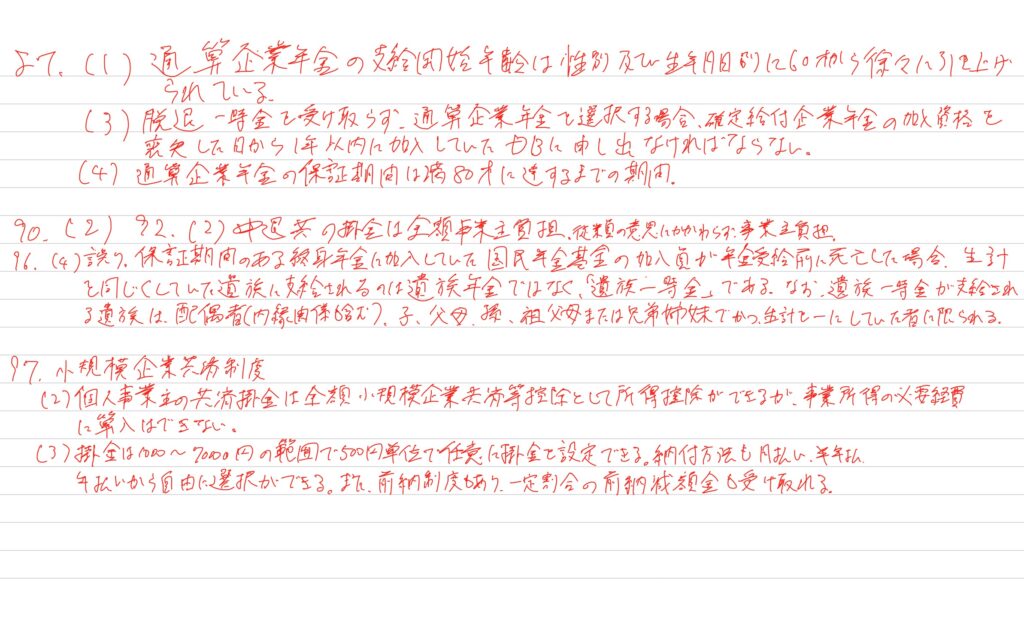 57. (1) 通算企業年金の支給開始年齢は性別及び生年月日別に60才から徐々に引き上げ
られている。
(3) 脱退一時金を受け取らず、通算企業年金を選択する場合、確定給付企業年金の加入資格を
喪失した日から1年以内に加入していたDBに申し出なければならない。
(4) 通算企業年金の保証期間は満80才に達するまでの期間。
90. (2) 92. (2) 中退共の掛金は全額事業主負担、従業員の意思にかかわらず事業主負担。
96. (4) 誤り。保証期間のある終身年金に加入していた国民年金基金の加入員が年金受給前に死亡した場合、生計
を同じくしていた遺族に支給されるのは遺族年金ではなく、「遺族一時金」である。なお、遺族一時金が支給され
る遺族は、配偶者(内縁関係も含む)、子、父母、孫、祖父母または兄弟姉妹でかつ生計を一にしていた者に限られる。
97. 小規模企業共済制度
(2) 個人事業主の共済掛金は全額小規模企業共済等控除として所得控除ができるが、事業所得の必要経費
に算入はできない。
(3) 掛金は1000〜70000円の範囲で500円単位で任意に掛金を設定できる。納付方法も月払い、半年払、
年払いから自由に選択ができる。また、前納制度もあり、一定割合の前納減額金も受け取れる。